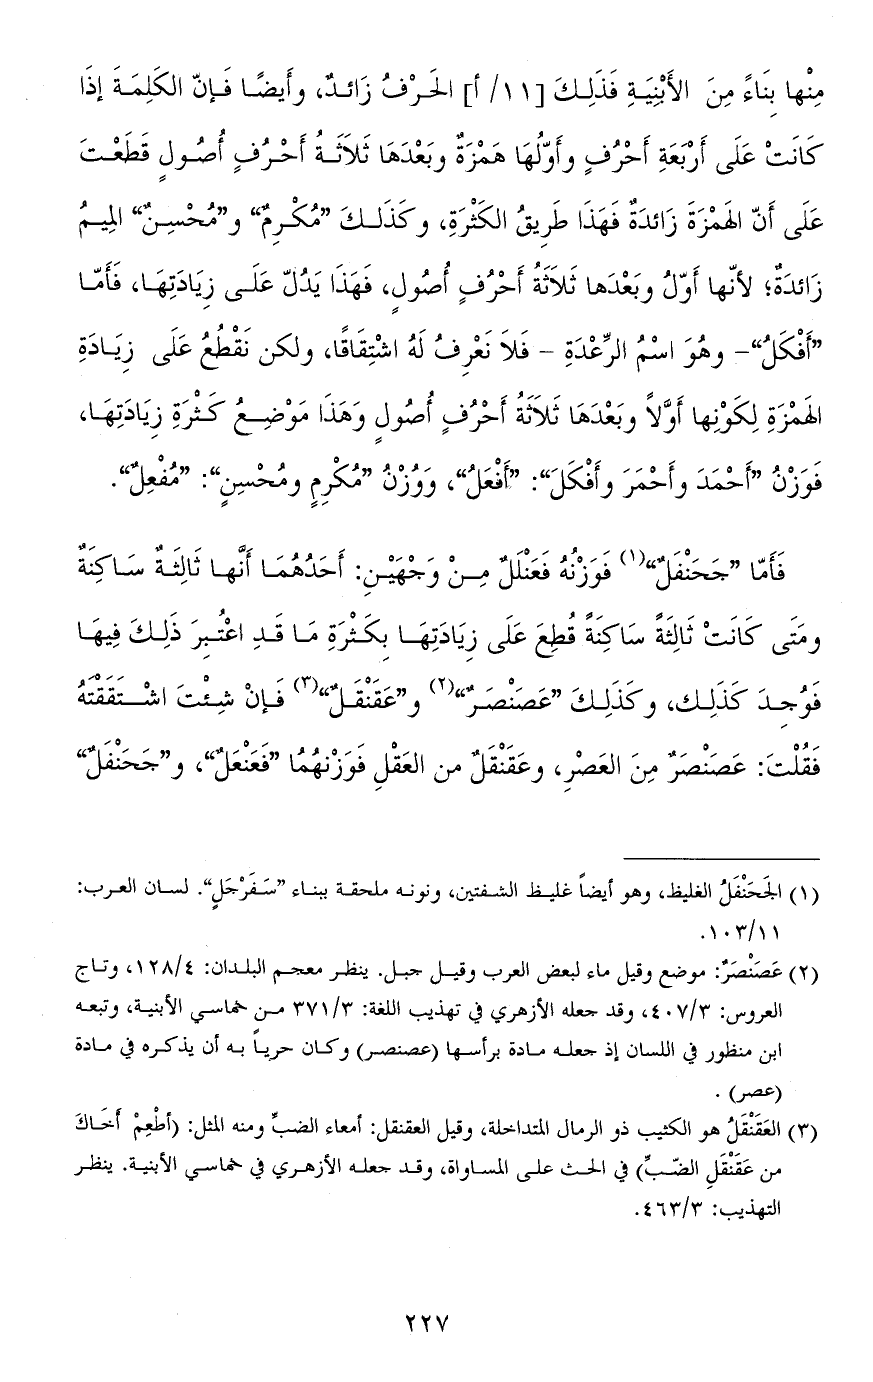 مِنْها بِنَاءً مِنَ الأَبْنِيَةِ فَذَلِكَ [١١/ أ] الحَرْفُ زَائدٌ، وأَيضًا فَإنّ الكَلِمَةَ إذَا
كَانَتْ عَلَى أَرْبَعَةِ أَحْرُفٍ وأَوّلُهَا هَمْزَةٌ وبَعْدَهَا ثَلاَثَةُ أَحْرُفٍ أُصُولٍ قَطَعْتَ
عَلَى أَنّ الهَمْزَةَ زَائدَةٌ فَهَذَا طَرِيقُ الكَثْرَةِ، وكَذَلكَ ”مُكْرِمٌ“ و”مُحْسِنٌ“ المِيمُ
زَائدَةٌ؛ لأنّها أَوّلُ وبَعْدَها ثَلاَثَةُ أَحْرُفٍ أُصُولٍ، فَهَذَا يَدُلّ عَلَى زِيَادَتِهَا، فَأَمّا
”أَفْكَلُ“– وهُوَ اسْمُ الرِّعْدَةِ – فَلاَ نَعْرِفُ لَهُ اشْتِقَاقًا، ولكن نَقْطَعُ عَلَى زِيَادَةِ
الهَمْزَةِ لِكَوْنِها أَوَّلاً وبَعْدَهَا ثَلاَثَةُ أَحْرُفٍ أُصُولٍ وَهَذَا مَوْضِعُ كَثْرَةِ زِيَادَتِهَا،
فَوَزْنُ ”أَحْمَدَ وأَحْمَرَ وأَفْكَلَ“: ”أَفْعَلُ“، ووُزْنُ ”مُكْرِمٍ ومُحْسِنٍ“: ”مُفْعِلٌ“.
فَأَمّا ”جَحَنْفَلٌ“(١) فَوَزْنُهُ فَعَنْلَلٌ مِنْ وَجْهَيْنِ: أَحَدُهُمَا أَنَّها ثَالِثَةٌ سَاكِنَةٌ
ومَتَى كَانَتْ ثَالِثَةً سَاكِنَةً قُطِعَ عَلَى زِيَادَتِهَا بِكَثْرَةِ مَا قَدِ اعْتُبِرَ ذَلِكَ فِيهَا
فَوُجِدَ كَذَلِك، وكَذَلِكَ ”عَصَنْصَرٌ“(٢) و”عَقَنْقَلٌ“(٣) فَإنْ شِئْتَ اشْتَقَقْتَهُ
فَقُلْتَ: عَصَنْصَرٌ مِنَ العَصْرِ، وعَقَنْقَلٌ من العَقْلِ فَوَزْنُهُمُا ”فَعَنْعَلٌ“، و”جَحَنْفَلٌ“
(١) الجَحَنْفَلُ الغليظ، وهو أيضاً غليظ الشفتين، ونونه ملحقة ببناء ”سَفَرْجَلٍ“. لسان العرب:
١٠٣/١١.
(٢) عَصَنْصَرٌ: موضع وقيل ماء لبعض العرب وقيل جبل. ينظر معجم البلدان: ١٢٨/٤، وتاج
العروس: ٤٠٧/٣، وقد جعله الأزهري في تهذيب اللغة: ٣٧١/٣ من خماسي الأبنية، وتبعه
ابن منظور في اللسان إذ جعله مادة برأسها (عصنصر) وكان حرياً به أن يذكره في مادة
(عصر) .
(٣) العَقَنْقَلُ هو الكثيب ذو الرمال المتداخلة، وقيل العقنقل: أمعاء الضبِّ ومنه المثل: (أطْعِمْ أَخَاكَ
من عَقَنْقَلِ الضّبِّ) في الحث على المساواة، وقد جعله الأزهري في خماسي الأبنية. ينظر
التهذيب: ٤٦٣/٣.
٢٢٧